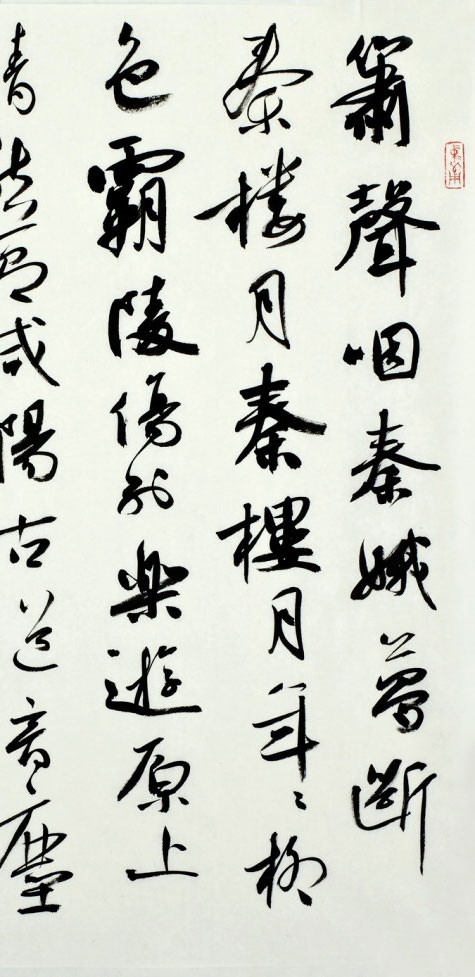 簫聲咽秦娥夢斷
秦楼月秦樓月年々柳
色霸陵傷別楽遊原上
清秋節咸陽古道音塵